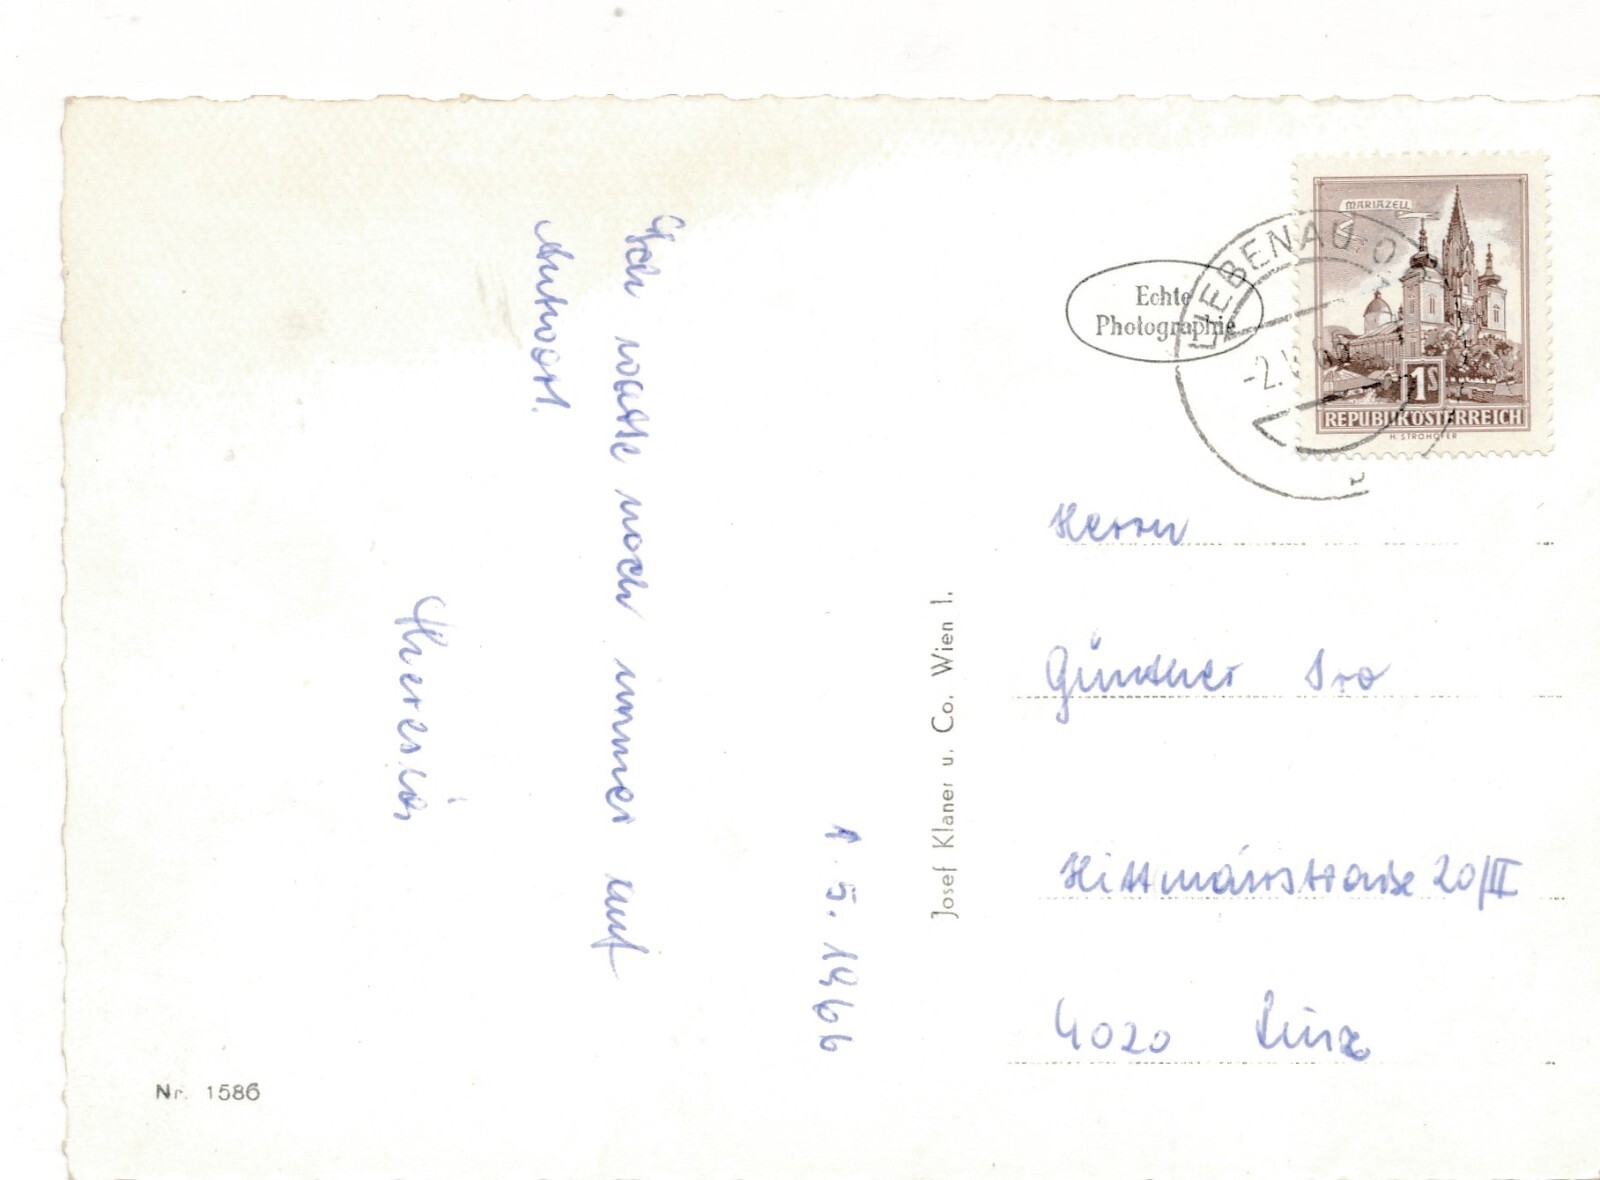 1. 5. 1966
Ich warte noch immer auf
Antwort.
Theresia
Nr. 1586
Josef Klaner u. Co. Wien I.
Echte
Photographie
LIEBENAU O
-2.
MARIAZELL
1S
REPUBLIK ÖSTERREICH
H. STROHOFER
Herrn
Günther Iro
Hittmairstraße 20/III
4020 Linz